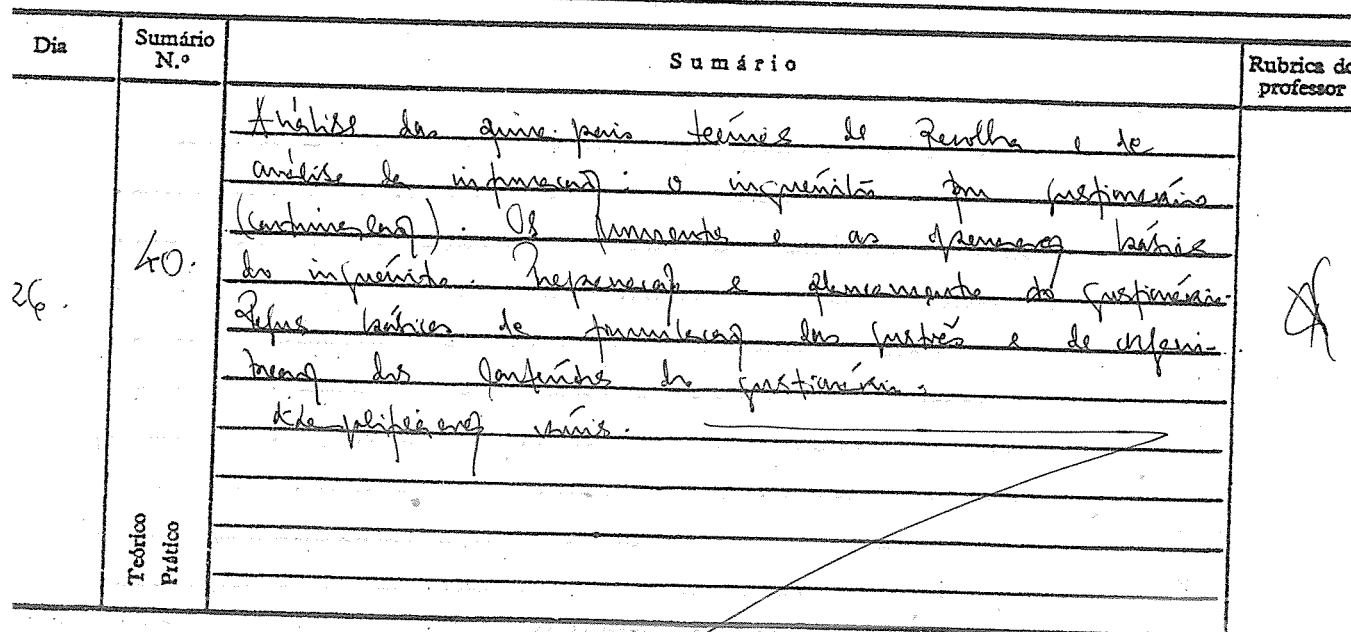 Dia
Sumário N.º
Sumário
Rubrica do professor
26.
40.
Análise das principais técnicas de Recolha e de
análise de informação: o inquérito por questionário
(continuação). Os momentos e as operações básicas
do inquérito. Preparação e planeamento do questionário.
Regras básicas de formulação das questões e de organi-
zação dos conteúdos do questionário.
Exemplificações várias.
Teórico
Prático